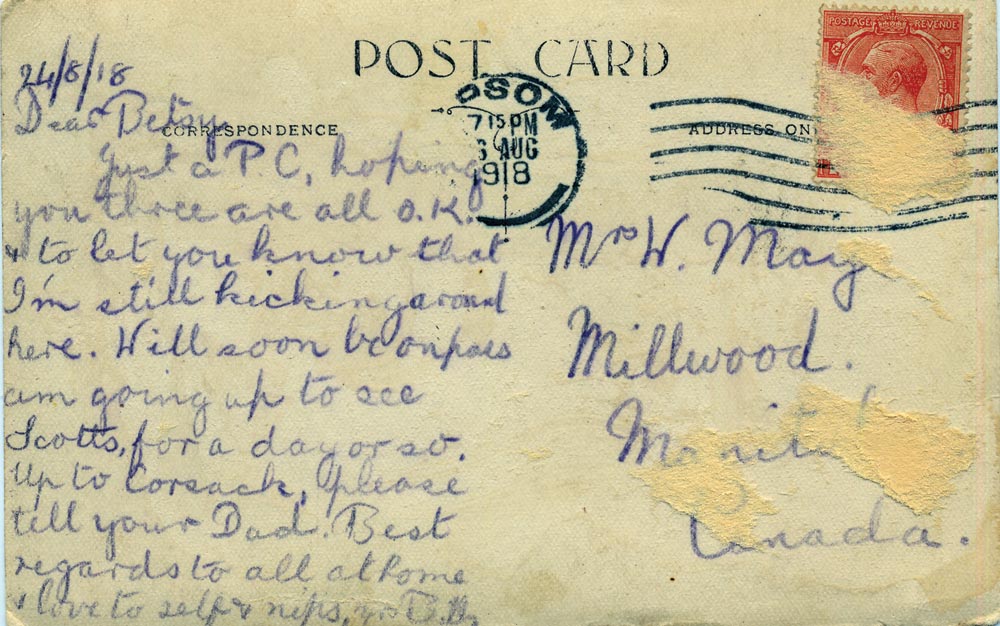 POST CARD
CORRESPONDENCE
ADDRESS ON
POSTAGE REVENUE
PSOM
7 15 PM
6 AUG
1918
24/8/18
Dear Betsy,
Just a P.C, hoping
you three are all O.K.
& to let you know that
I'm still kicking around
here. Will soon be on pass
am going up to see
Scotts, for a day or so.
Up to Corsack, please
tell your Dad. Best
regards to all at home
& love to self & nips, yrs
Mrs W. May
Millwood.
Canada.